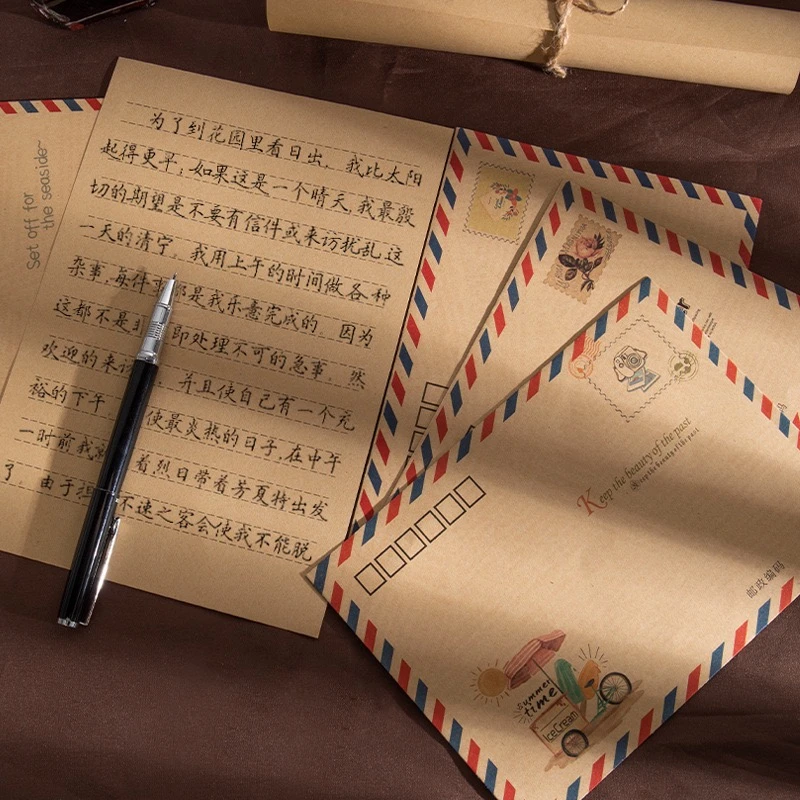 Set off for
the seaside~
为了到花园里看日出，我比太阳
起得更早；如果这是一个晴天，我最殷
切的期望是不要有信件或来访扰乱这
一天的清宁。我用上午的时间做各种
杂事，每件 都是我乐意完成的，因为
这都不是非 即处理不可的急事，然
欢迎的来访 ，并且使自己有一个充
裕的下午 使最炎热的日子，在中午
一时前我 着烈日带着芳夏特出发
了，由于担 不速之客会使我不能脱
Keep the beauty of the past
Keep the beauty of the past
邮政编码
Summer
time
Ice Cream